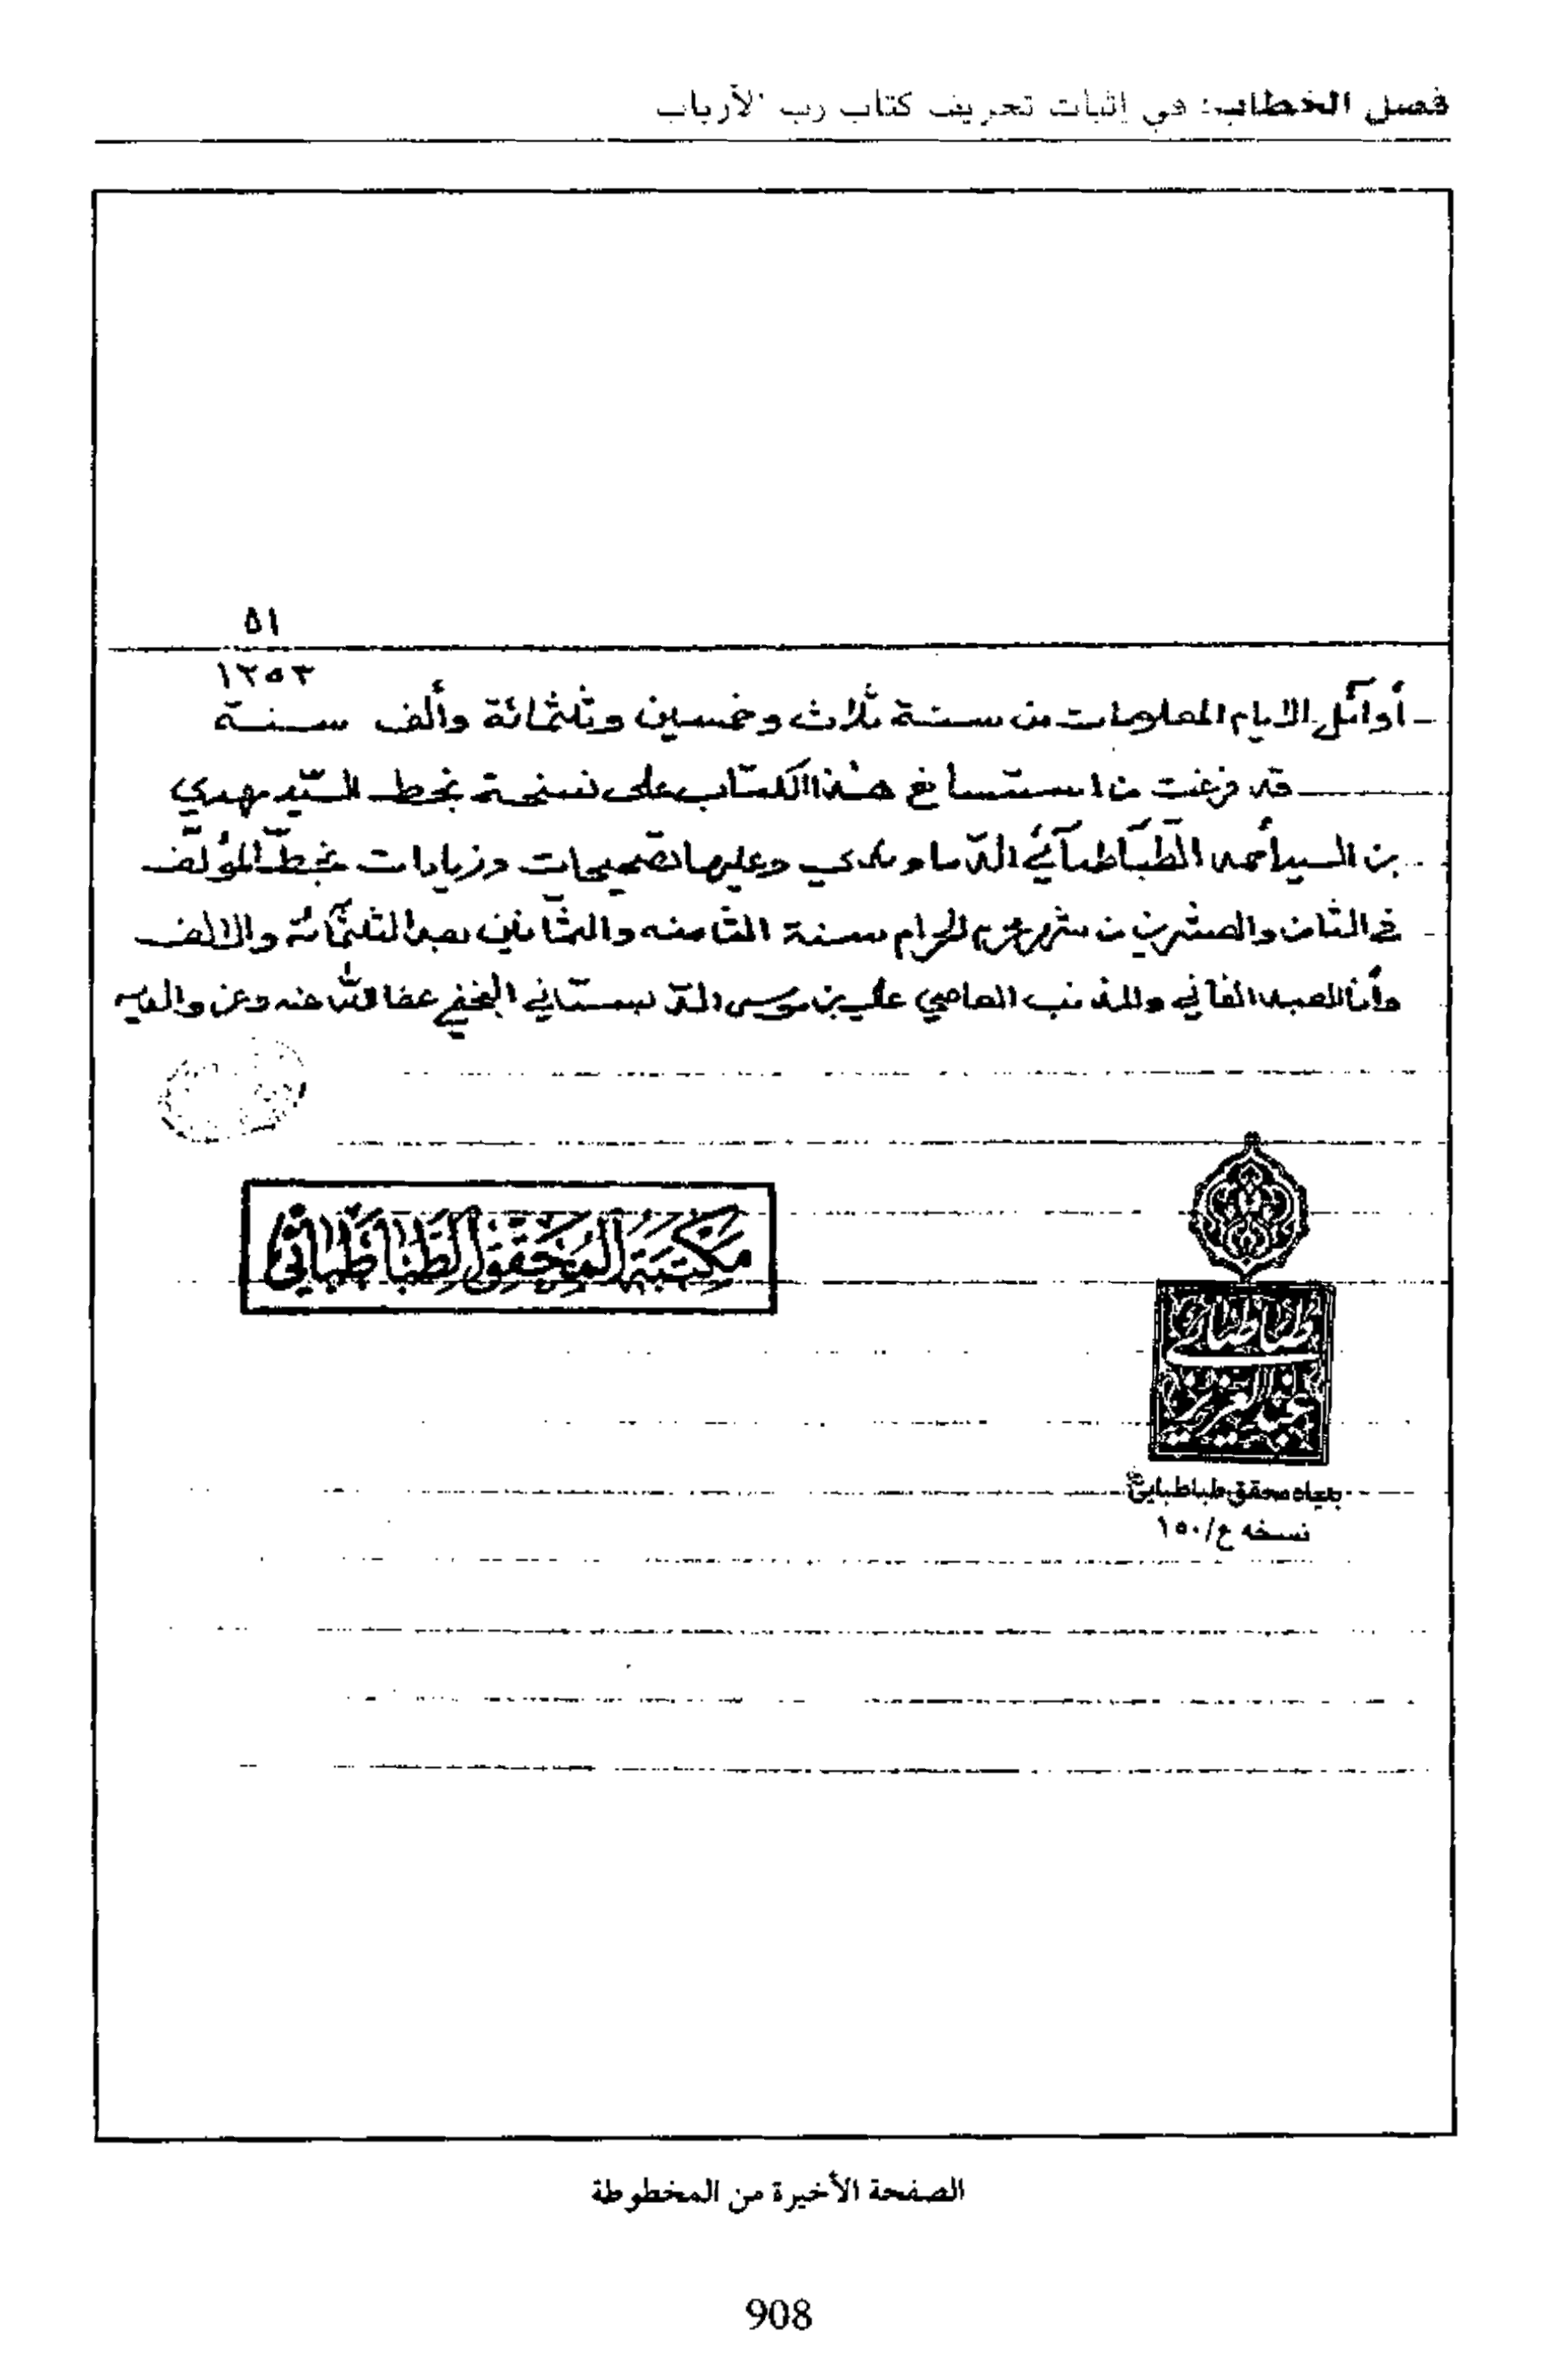 فصل الخطاب: في إثبات تحريف كتاب رب الأرباب
٥١
١٣٥٣
أوائل الايام المعلومات من سنة ثلاث وخمسين وثلثمائة وألف سنة
قد فرغت من استنساخ هذا الكتاب على نسخة بخط السيّد مهدي
بن السيد أحمد الطّباطبآئي وعليها تصحيحات وزيادات بخطّ المؤلّف
في الثامن والعشرين من شهر محرم الحرام سنة الثامنه والثمانين بعد الثلثمّائة والالف
وأنا العبد الفاني والمذنب العاصي علي بن موسى النجفي عفا الله عنه وعن والديه
مكتبة المحقق الطباطبائي
طباطبائي
عبدالعزيز
بنياد محقق طباطبايي
نسخه ع/١٥٠
الصفحة الأخيرة من المخطوطة
908